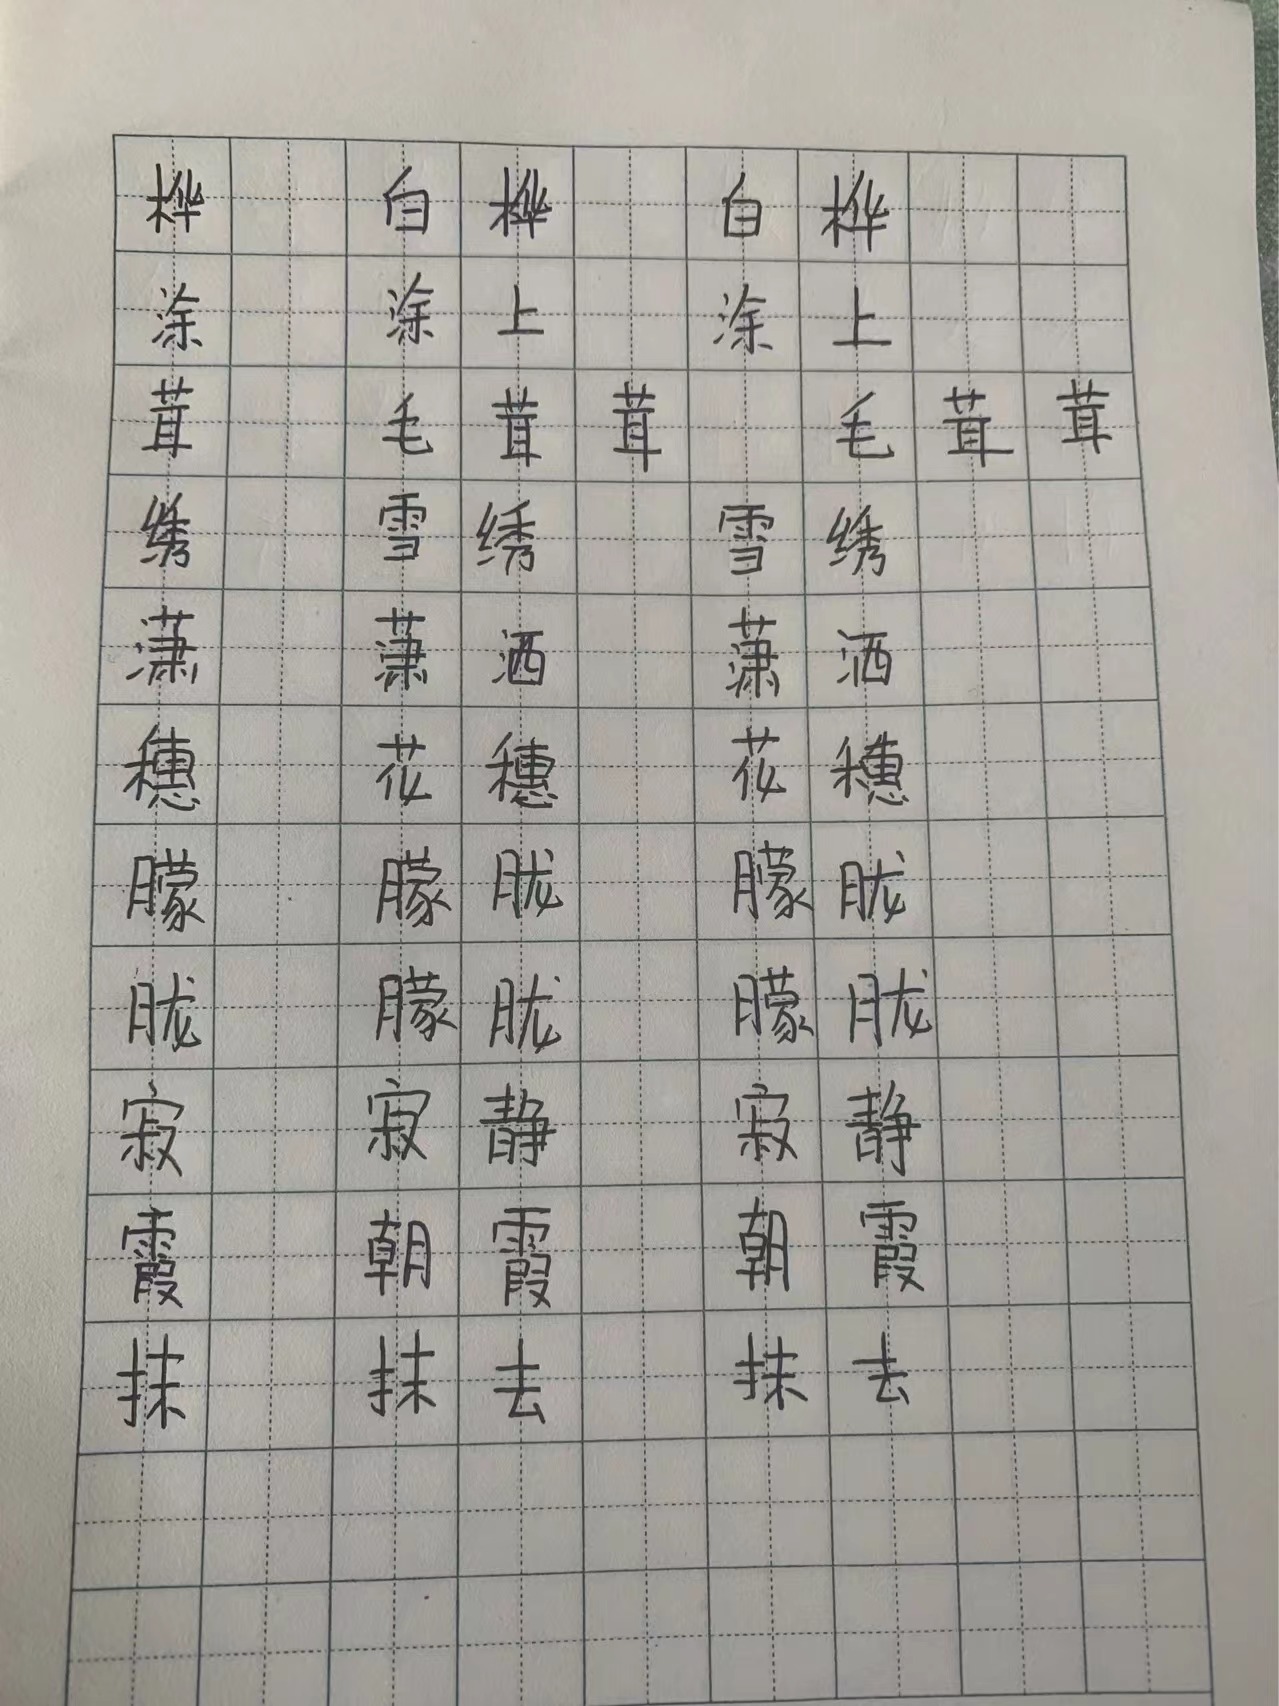 桦 白桦 白桦
涂 涂上 涂上
茸 毛茸茸 毛茸茸
绣 雪绣 雪绣
潇 潇洒 潇洒
穗 花穗 花穗
朦 朦胧 朦胧
胧 朦胧 朦胧
寂 寂静 寂静
霞 朝霞 朝霞
抹 抹去 抹去